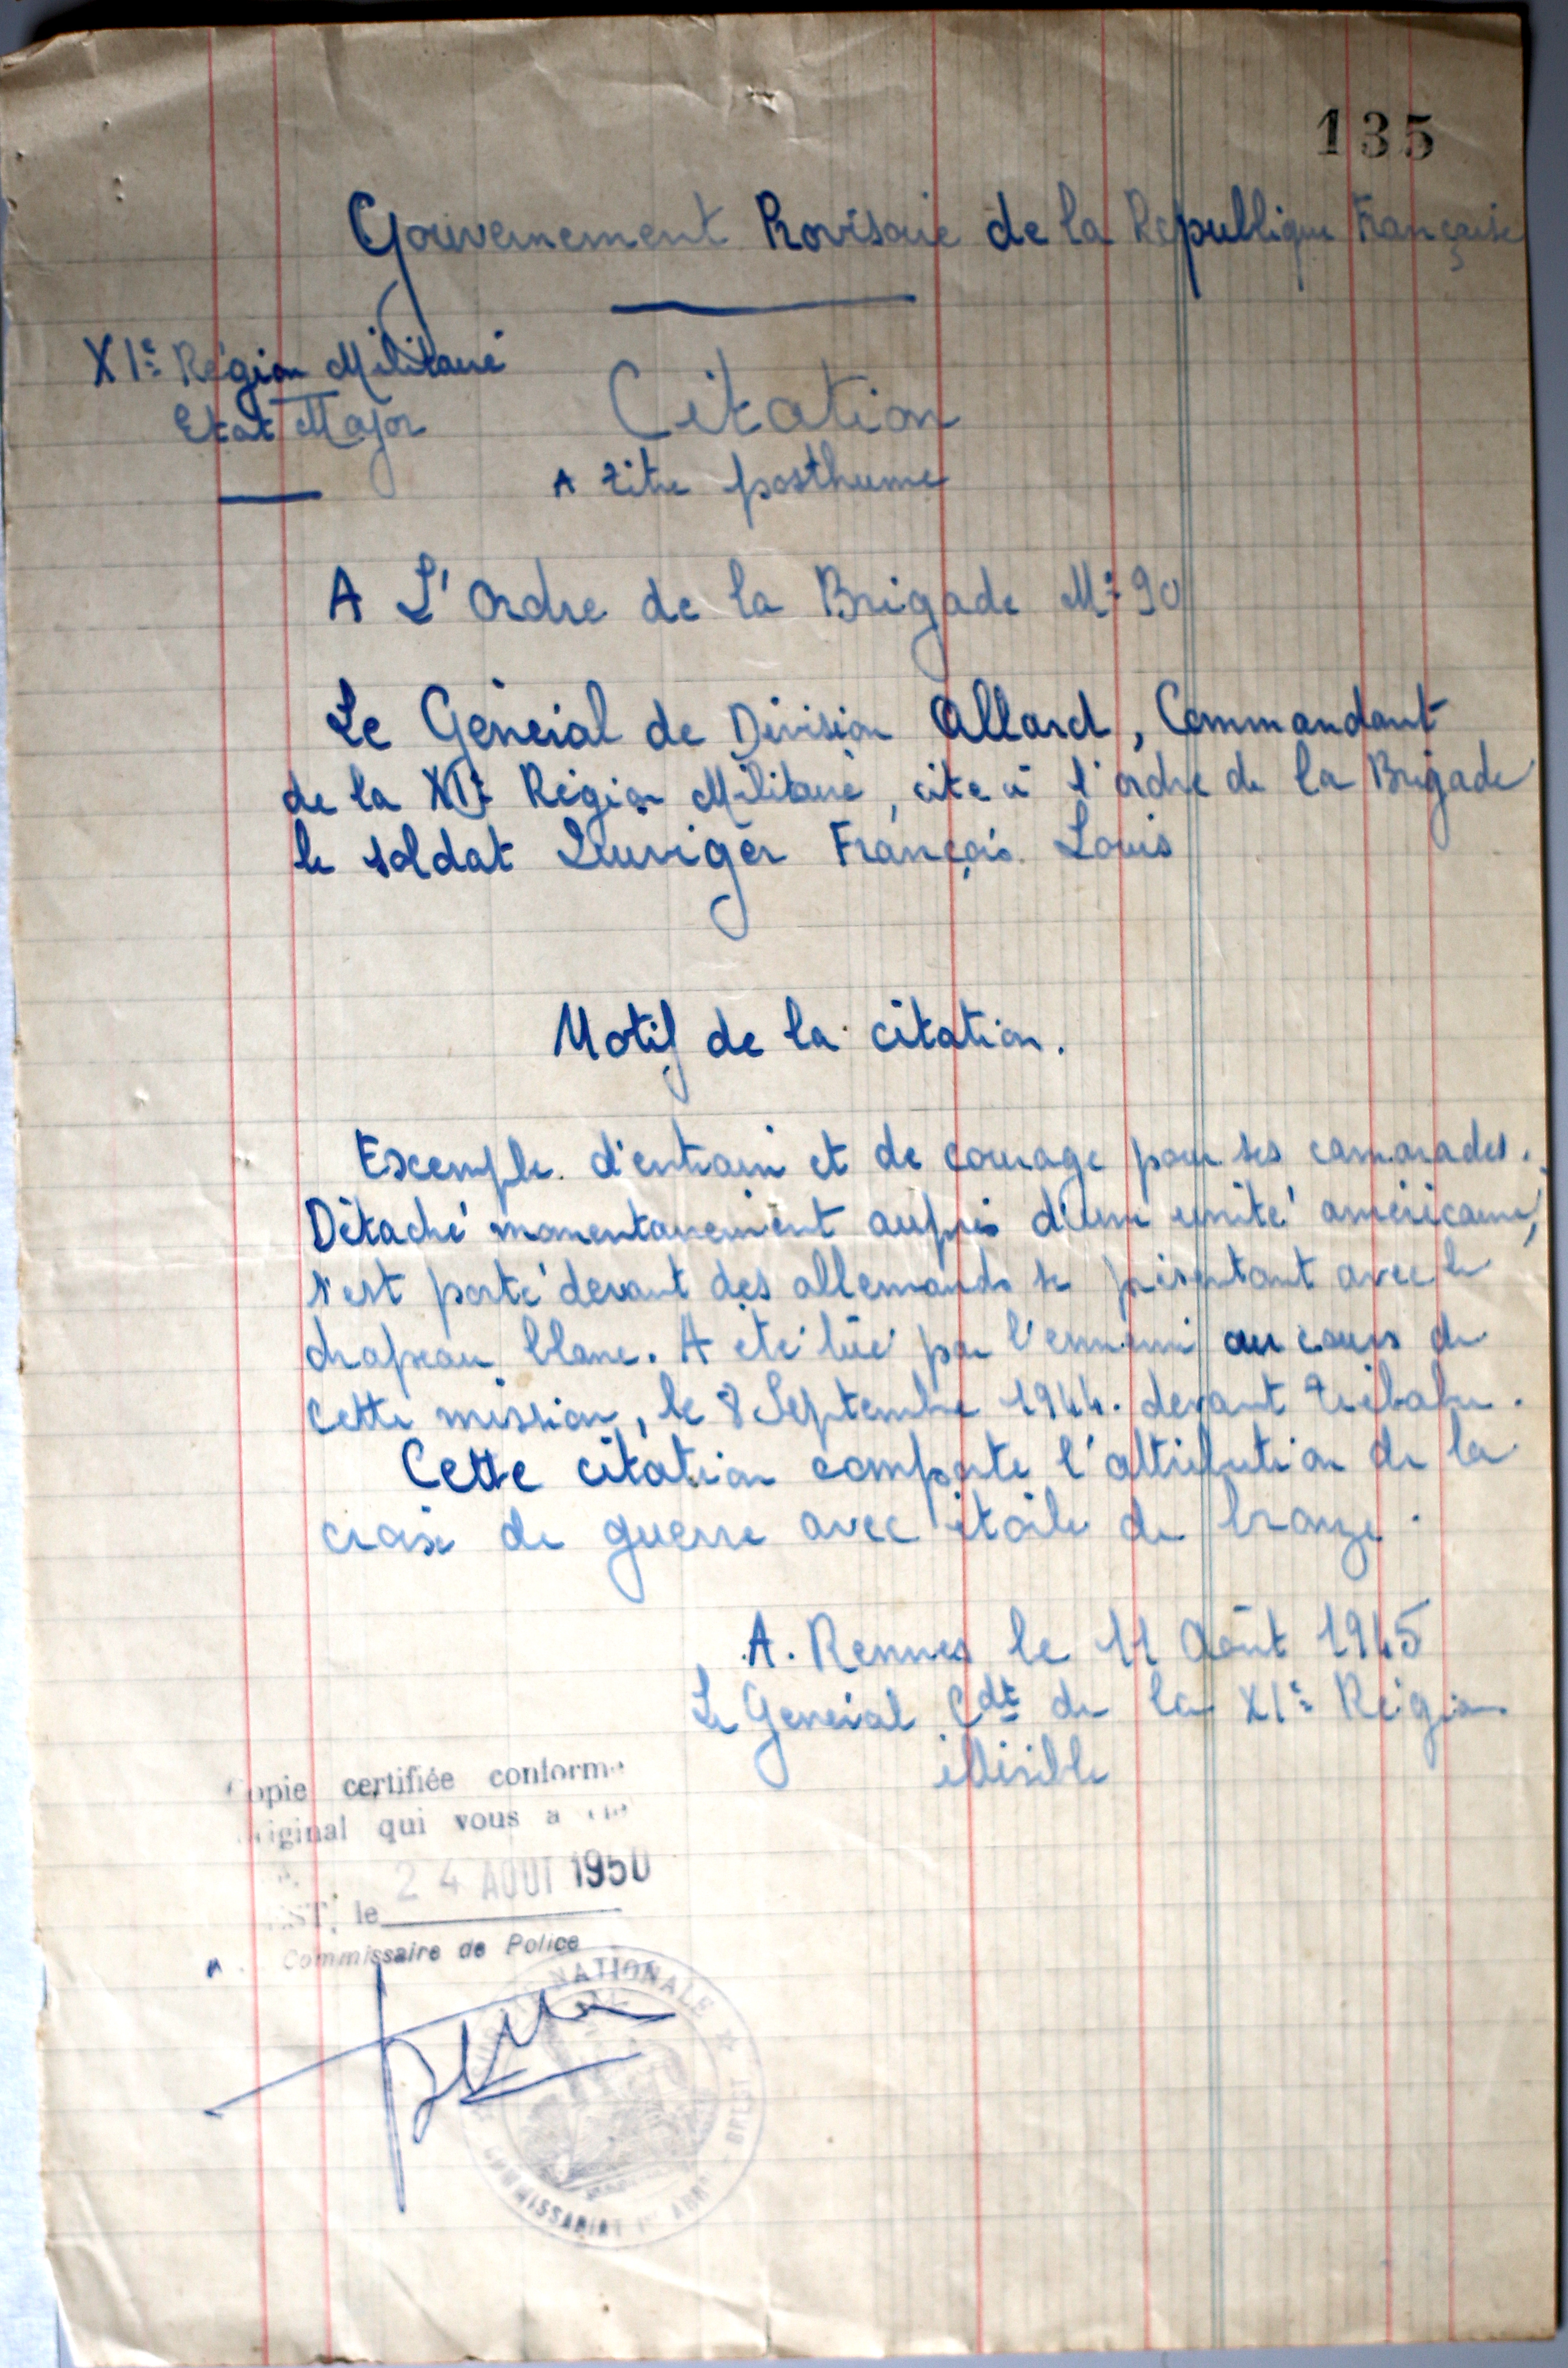 135
Gouvernement Provisoire de la République Française
XIe Région Militaire
Etat Major
Citation
A titre posthume
A L'Ordre de la Brigade No 90
Le Général de Division Allard, Commandant
de la XIe Région Militaire, cite à l'ordre de la Brigade
le soldat François Louis
Motif de la citation.
Exemple d'entrain et de courage pour ses camarades.
Détaché momentanement auprès d'une unité américaine,
s'est porté devant des allemands se présentant avec le
drapeau blanc. A été tué par l'ennemi au cours de
cette mission, le 8 Septembre 1944. devant Trébabu.
Cette citation comporte l'attribution de la
croix de guerre avec étoile de bronze.
A. Rennes le 11 Août 1945
Le Général Cdt de la XIe Région
illisible
Copie certifiée conforme
original qui vous a
24 AOUT 1950
le
Commissaire de Police
NATIONALE
COMMISSARIAT BREST